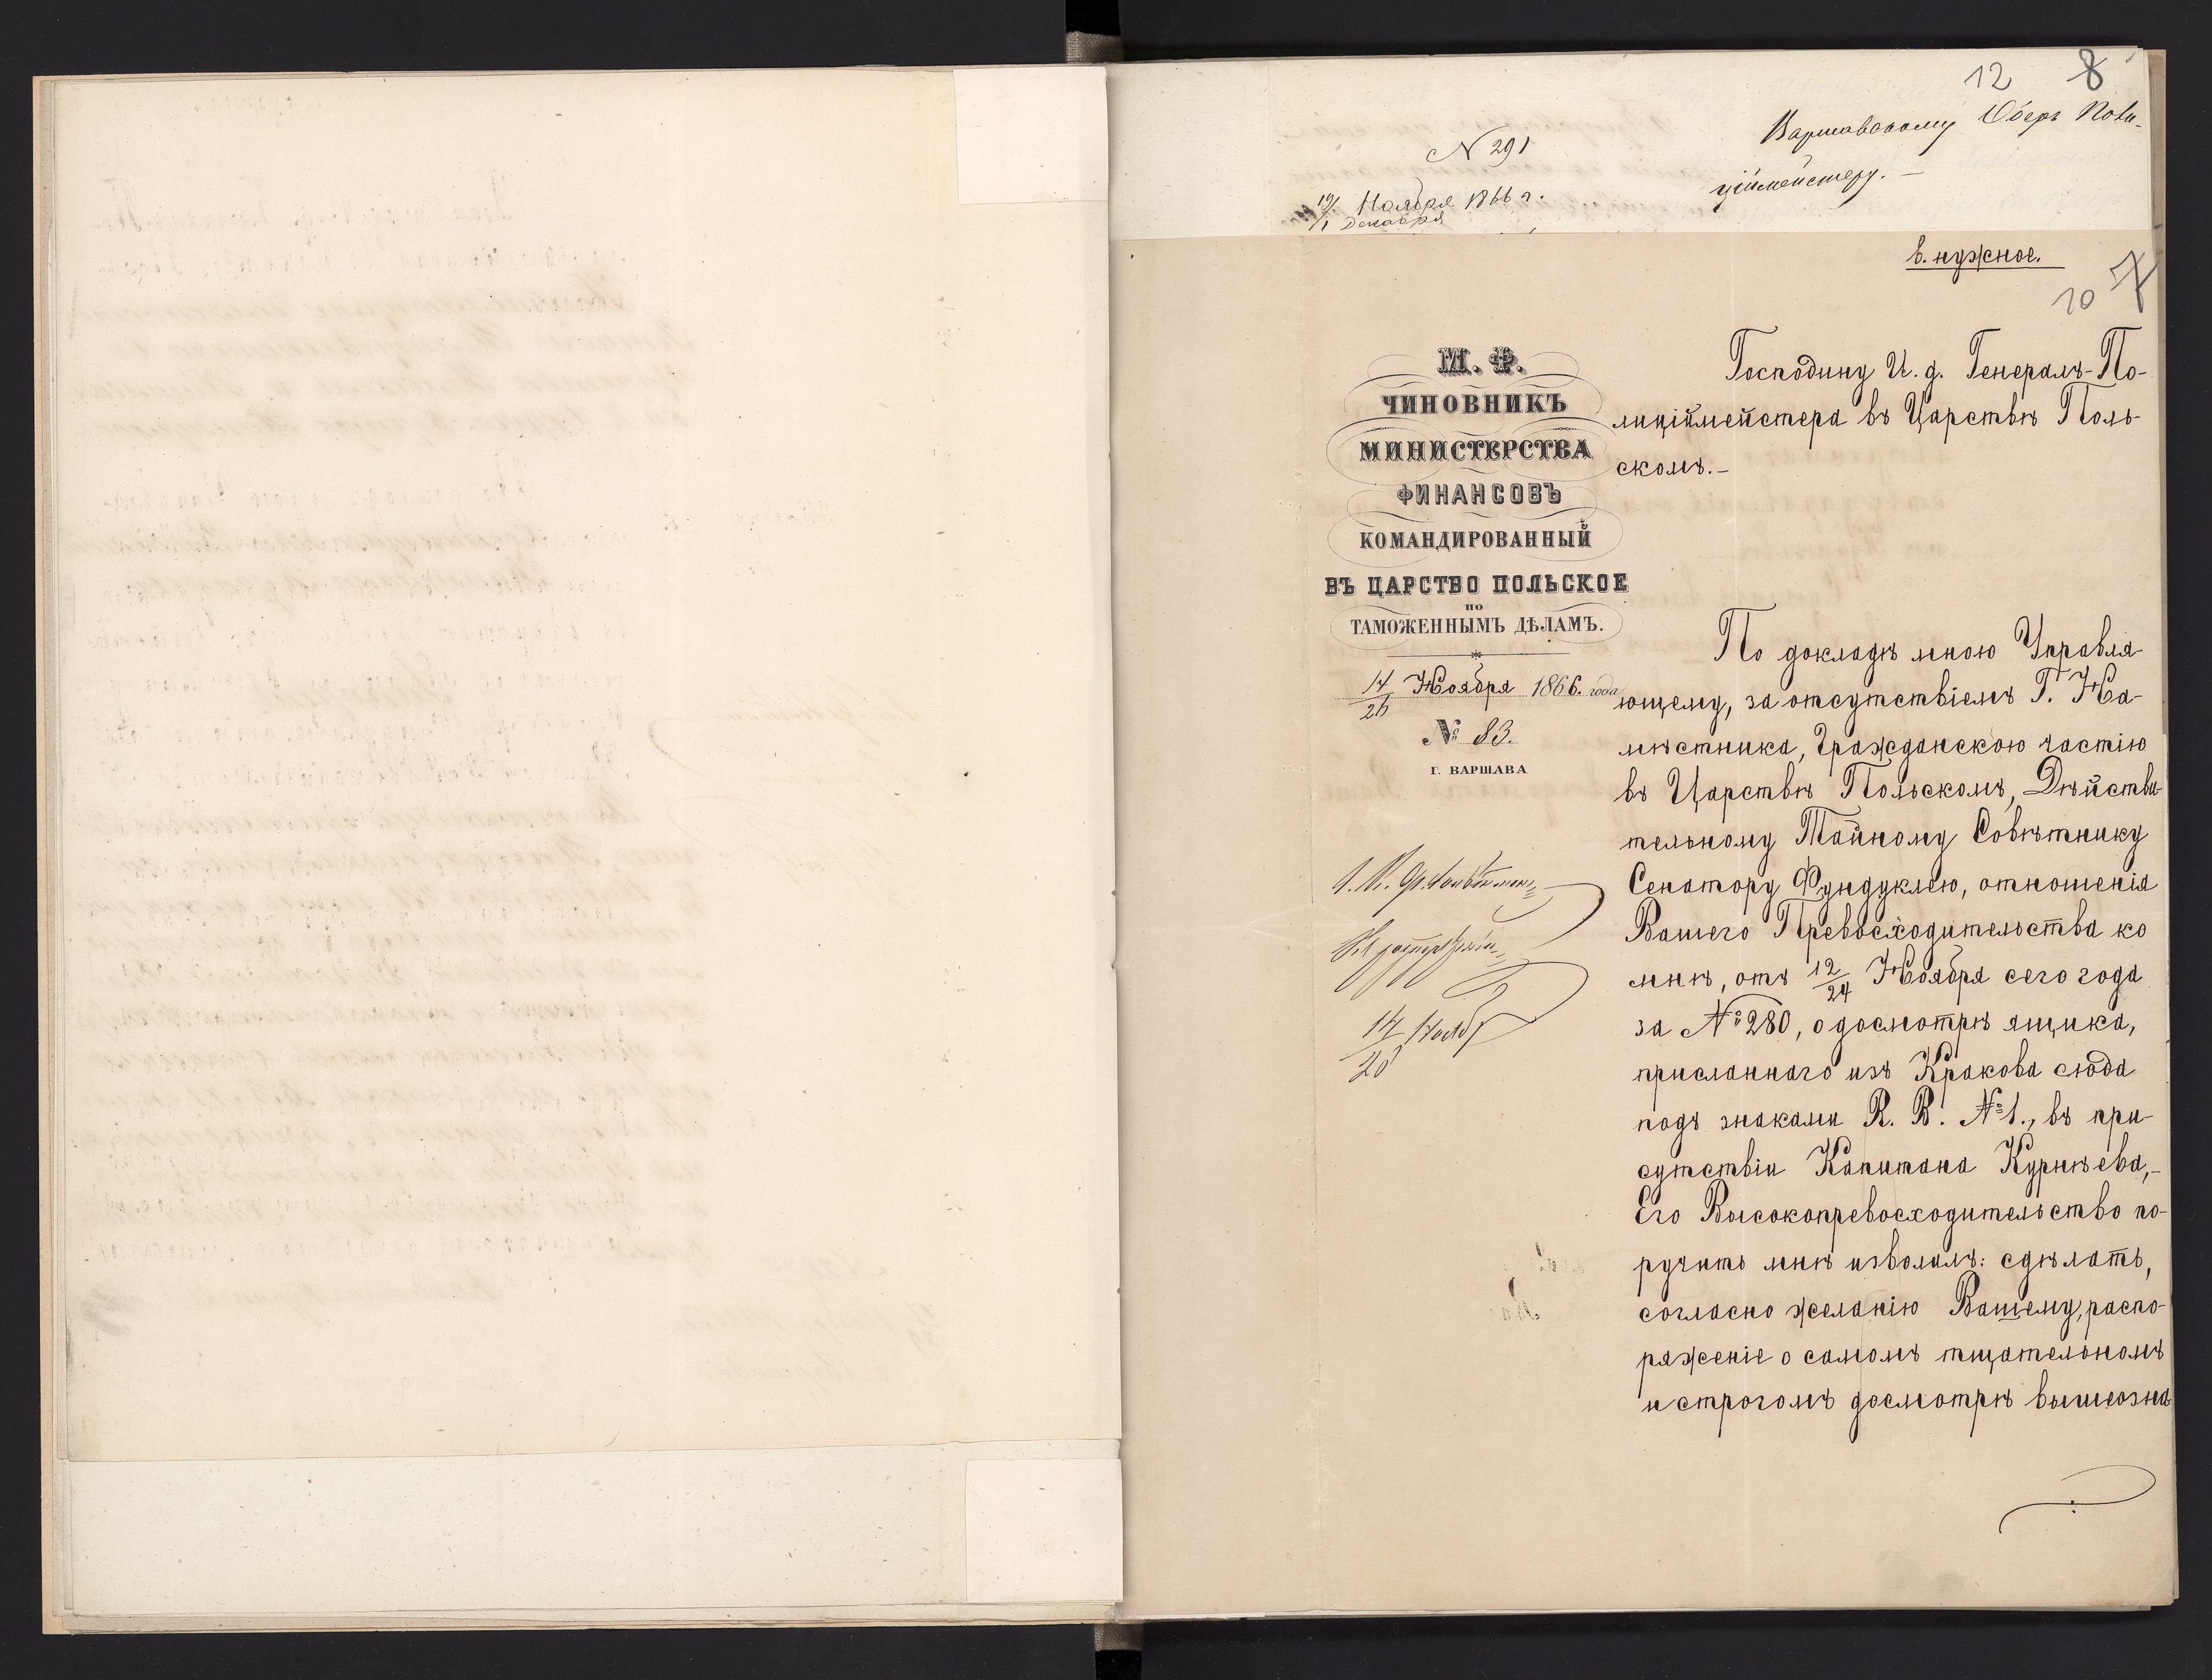 12 8
Варшавскому Оберъ Поли-
ціймейстеру. —
N 291
19/1 Ноября 1866 г.
Декабря
в. нужное.
10 7
М. Ф.
ЧИНОВНИКЪ
МИНИСТЕРСТВА
ФИНАНСОВЪ
КОМАНДИРОВАННЫЙ
ВЪ ЦАРСТВО ПОЛЬСКОЕ
ПО
ТАМОЖЕННЫМЪ ДѢЛАМЪ.
14/26 Ноября 1866. года
№ 83.
Г. ВАРШАВА
14/26 Нояб
Господину И. д. Генералъ-По-
лиціймейстера въ Царствѣ Поль-
скомъ.-
По докладѣ мною Управля-
ющему, за отсутствіемъ Г. На-
мѣстника, Гражданскою частію
въ Царствѣ Польскомъ, Дѣйстви-
тельному Тайному Совѣтнику
Сенатору Фундуклею, отношенія
Вашего Превосходительства ко
мнѣ, отъ 12/24 Ноября сего года
за № 280, о досмотрѣ ящика,
присланнаго изъ Кракова сюда
подъ знаками R. B. № 1., въ при-
сутствіи Капитана Курнѣева,-
Его Высокопревосходительство по-
ручить мнѣ изволилъ: сдѣлать,
согласно желанію Вашему, распо-
ряженіе о самомъ тщательномъ
и строгомъ досмотрѣ вышеозна-